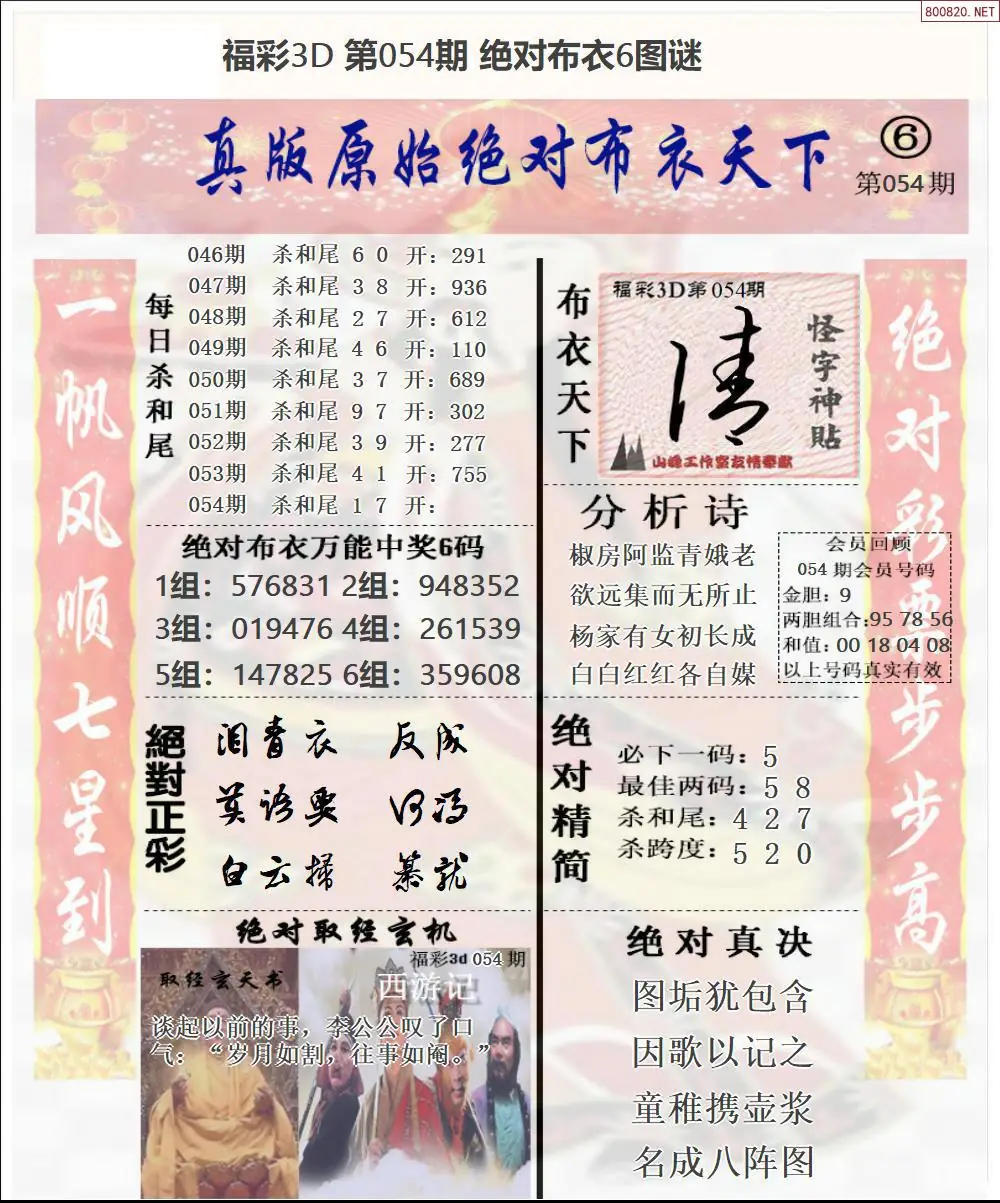 800820.NET
福彩3D 第054期 绝对布衣6图谜
真版原始绝对布衣天下
⑥
第054期
一帆风顺七星到
每日杀和尾
046期 杀和尾 6 0 开：291
047期 杀和尾 3 8 开：936
048期 杀和尾 2 7 开：612
049期 杀和尾 4 6 开：110
050期 杀和尾 3 7 开：689
051期 杀和尾 9 7 开：302
052期 杀和尾 3 9 开：277
053期 杀和尾 4 1 开：755
054期 杀和尾 1 7 开：
绝对布衣万能中奖6码
1组：576831 2组：948352
3组：019476 4组：261539
5组：147825 6组：359608
絕對正彩
泪青衣 反成
英语要 河冯
白云掃 慕就
绝对取经玄机
福彩3d 054期
取经玄天书
西游记
谈起以前的事，李公公叹了口
气：“岁月如割，往事如阉。”
布衣天下
福彩3D第054期
清
怪字神貼
山峰工作室友情奉献
分析诗
椒房阿监青娥老
欲远集而无所止
杨家有女初长成
白白红红各自媒
会员回顾
054期会员号码
金胆：9
两胆组合:95 78 56
和值：00 18 04 08
以上号码真实有效
绝对精简
必下一码：5
最佳两码：5 8
杀和尾：4 2 7
杀跨度：5 2 0
绝对真决
图垢犹包含
因歌以记之
童稚携壶浆
名成八阵图
绝对彩票步步高